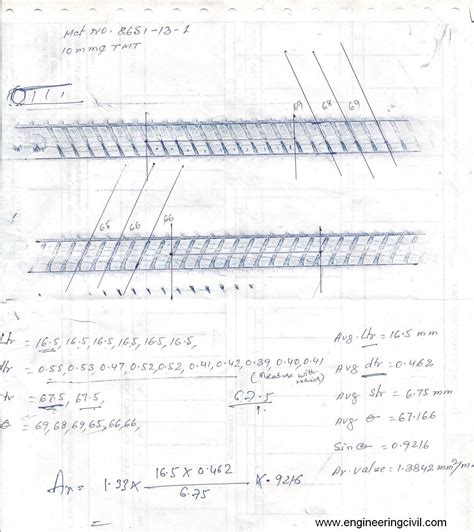 Met NO. 8651-13-1
10 mm φ TMT
69 68 69
65 66 66
ltr = 16.5, 16.5, 16.5, 16.5, 16.5, 16.5,
dtr = 0.55, 0.53 0.47, 0.52, 0.52, 0.41, 0.42, 0.39, 0.40, 0.41
(Measure with
str = 67.5, 67.5,
67.5
θ = 69, 68, 69, 65, 66, 66,
Avg ltr = 16.5 mm
Avg dtr = 0.462
Avg Str = 6.75 mm
Avg θ = 67.166
Sin θ = 0.9216
Ar. value = 1.3842 mm²/m
Ar = 1.33 X 16.5 X 0.462 / 6.75 X .9216
www.engineeringcivil.com